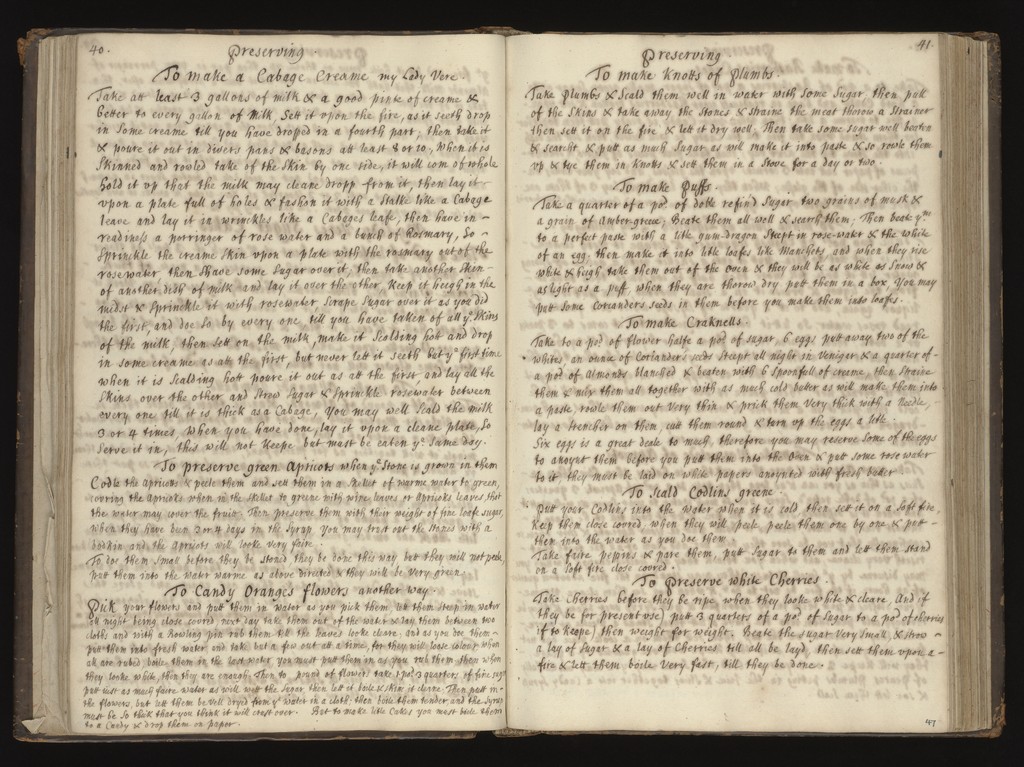 40.
Preserving.
To make a Cabage Creame my Lady Vere.
Take att least 3 gallons of milk & a good pinte of creame &
better to every gallon of milk, Sett it vpon the fire, as it seeth drop
in Some creame till you have droped in a fourth part, then take it
& poure it out in divers pans & basons att least 8 or 10, When it is
Skinned and rowled take of the Skin by one side, it will com of whole
hold it vp that the milk may cleane dropp from it, then lay it
vpon a plate full of holes & fashon it with a Stalke like a Cabage
leave and lay it in wrinckles like a Cabages leafe, then have in
readiness a porringer of rose water and a bunch of Rosmary, So
Sprinkle the creame Skin vpon a plate with the rosmary out of the
rosewater then Shave some Sugar over it, then take another Skin
of another dish of milk and lay it over the other, Keep it heigh in the
midst & Sprinkle it with rosewater Scrape Sugar over it as you did
the first, and doe So by every one till you have taken of all ye Skins
of the milk, then sett on the milk, make it Scalding hott and drop
in some creame as att the first, but never lett it seeth but ye first time
when it is Scalding hott poure it out as att the first, and lay all the
Skins over the other and Strew Sugar & Sprinkle rosewater between
every one till it is thick as a Cabage, You may well Scald the milk
3 or 4 times When you have done, lay it vpon a cleane plate, So
Serve it in, this will not Keepe but must be eaten ye Same day.
To preserve green Apricots when ye Stone is grown in them
Codle the Apricots & peele them and sett them in a Skillet of warme water to green,
covring the Apricoks when in the Skillet to greene with wine leaves or Apricoks leaves, that
the water may cover the fruit. Then preserve them with their weight of fine loafe sugar,
when they have been 3 or 4 days in the Syrup, You may trust out the Stones with a
bodkin and the Apricots will looke very faire.
To doe them Small before they be stoned, they be done this way but they will not peele,
putt them into the water warme as above directed & they will be Very green.
To Candy Oranges flowers another way.
Pick your flowers and putt them in water as you pick them, let them Steep in water
all night being close covred next day take them out of the water & lay them between two
cloths and with a Rowling pin rub them till the leaves looke cleare, and as you doe them
putt them into fresh water and take but a few out att a time, for they will loose colour when
all are rubed, boile them in the last water, you must putt them in as you rub them then when
they looke white, then they are enough, Then to pound of flowers take 1 po: 3 quarters of fine sug:
putt iust as much faire water as will wett the Sugar, then lett it boile & Skim it cleane. Then putt in
the flowers, but lett them be Well dryed from ye water in a cloth, then boile them tender, and the Syrup
must be So thick that you think it will crust over. But to make litle Cakes you must boile them
to a Candy & drop them on paper.
41.
Preserving
To make Knotts of Plumbs.
Take Plumbs & Scald them well in water with some Sugar then pull
of the Skins & take away the Stones & Straine the meat throw a Strainer
then sett it on the fire & lett it dry well, Then take some sugar well beaten
& searcht, & putt as much Sugar as will make it into paste & so rowle them
vp & tye them in Knotts & sett them in a Stove for a day or two.
To make Puffs.
Take a quarter of a po: of doble refind Sugar two grains of musk &
a grain of Amber-greece, Beate them all well & search them, Then beate ym
to a perfect paste with a litle gum-dragon Steept in rose-water & the white
of an egg, then make it into little loafes like Manchets, and when they rise
white & heigh take them out of the Oven & they will be as white as Snow &
as light as a puff, when they are thorow dry putt them in a box, You may
putt some Corianders seeds in them before you make them into loafes.
To make Craknells.
Take to a po: of flower halfe a po: of sugar, 6 eggs putt away two of the
whites an ounce of Corianders seeds Steept all night in Veniger & a quarter of
a po: of Almonds blanched & beaten with 6 Spoonfull of creeme, then Straine
them & mix them all together with as much cold butter as will make them into
a paste, rowle them out Very thin & prick them Very thick with a Needle,
lay a trencher on them, cutt them round & turn up the eggs a litle.
Six eggs is a great deale to much, therefore you may reserve Some of the eggs
to anoynt them before you putt them into the Oven & putt some rose water
to it, they must be laid on white papers anoynted with fresh butter
To Scald Codlins greene
Putt your Codlins into the water when it is cold then sett it on a Soft fire,
Keep them close covred when they will peele, peele them one by one & putt
them into the water as you doe them.
Take faire pepins & pare them, putt Sugar to them and lett them stand
on a Soft fire close covred.
To Preserve white Cherries.
Take Cherries before they be ripe when they looke white & cleare And if
they be for present vse) putt 3 quarters of a po: of Sugar to a po: of cherries
if to keepe) then weight for weight. Beate the Sugar Very Small, & strow
a lay of Sugar & a lay of Cherries till all be layd, then sett them vpon a
fire & lett them boile Very fast, till they be done.
47